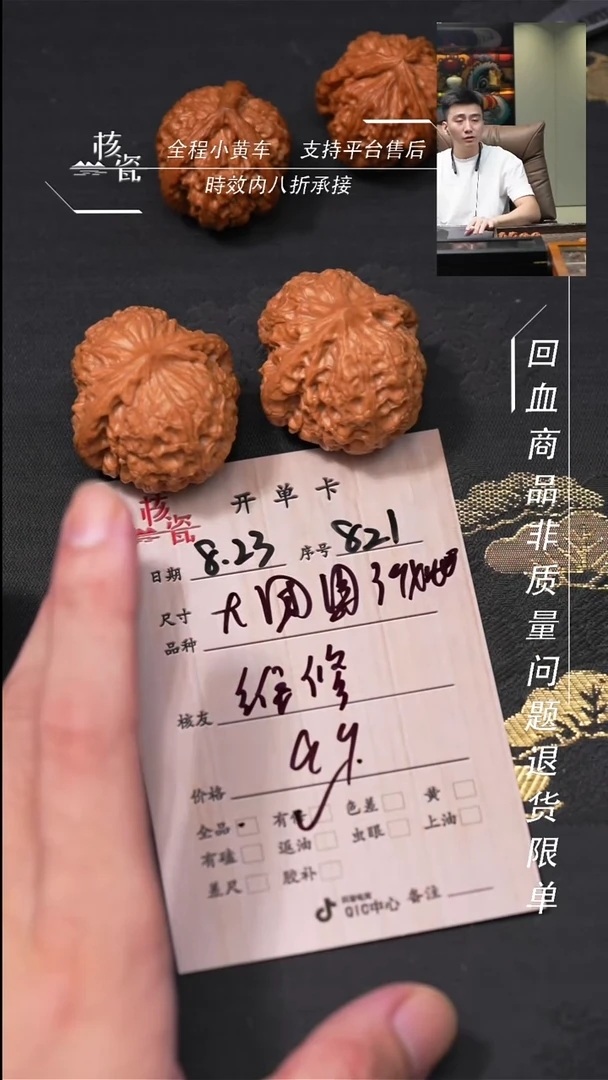 核瓷
全程小黄车 支持平台售后
時效内八折承接
回血商品非质量问题退货限单
核瓷
开单卡
日期 8.23 序号 821
尺寸 大团圆
品种
核友 维修
价格
全品 有 色差 黄
有磕 返油 虫眼 上油
差尺 胶补
QIC中心 备注